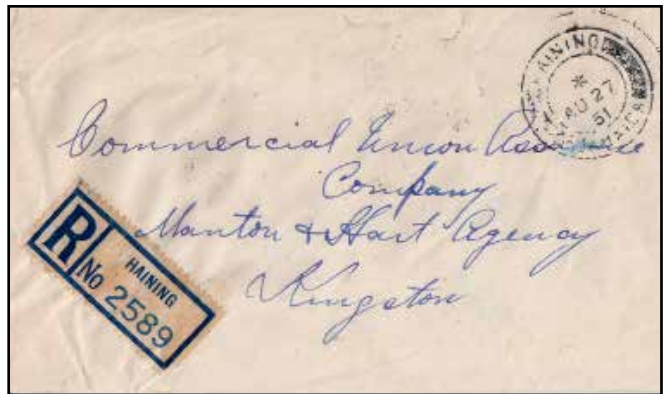 HAINING
*
AU 27
51
JAMAICA
Commercial Union Assurance
Company
Manton & Hart Agency
Kingston
R
HAINING
No 2589